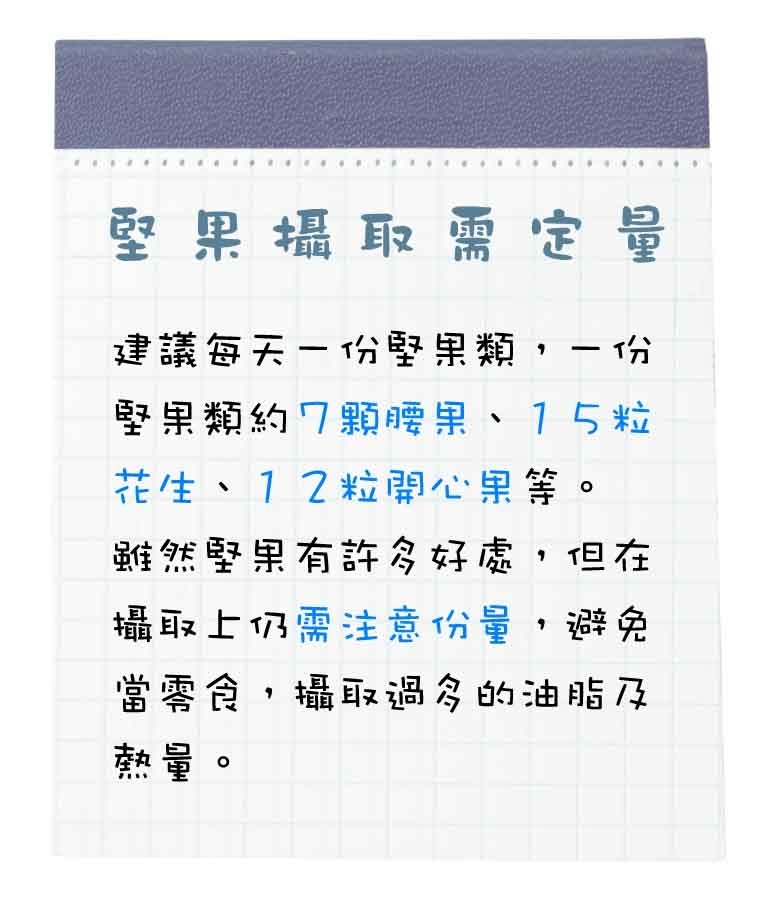 堅果攝取需定量
建議每天一份堅果類，一份
堅果類約7顆腰果、15粒
花生、12粒開心果等。
雖然堅果有許多好處，但在
攝取上仍需注意份量，避免
當零食，攝取過多的油脂及
熱量。